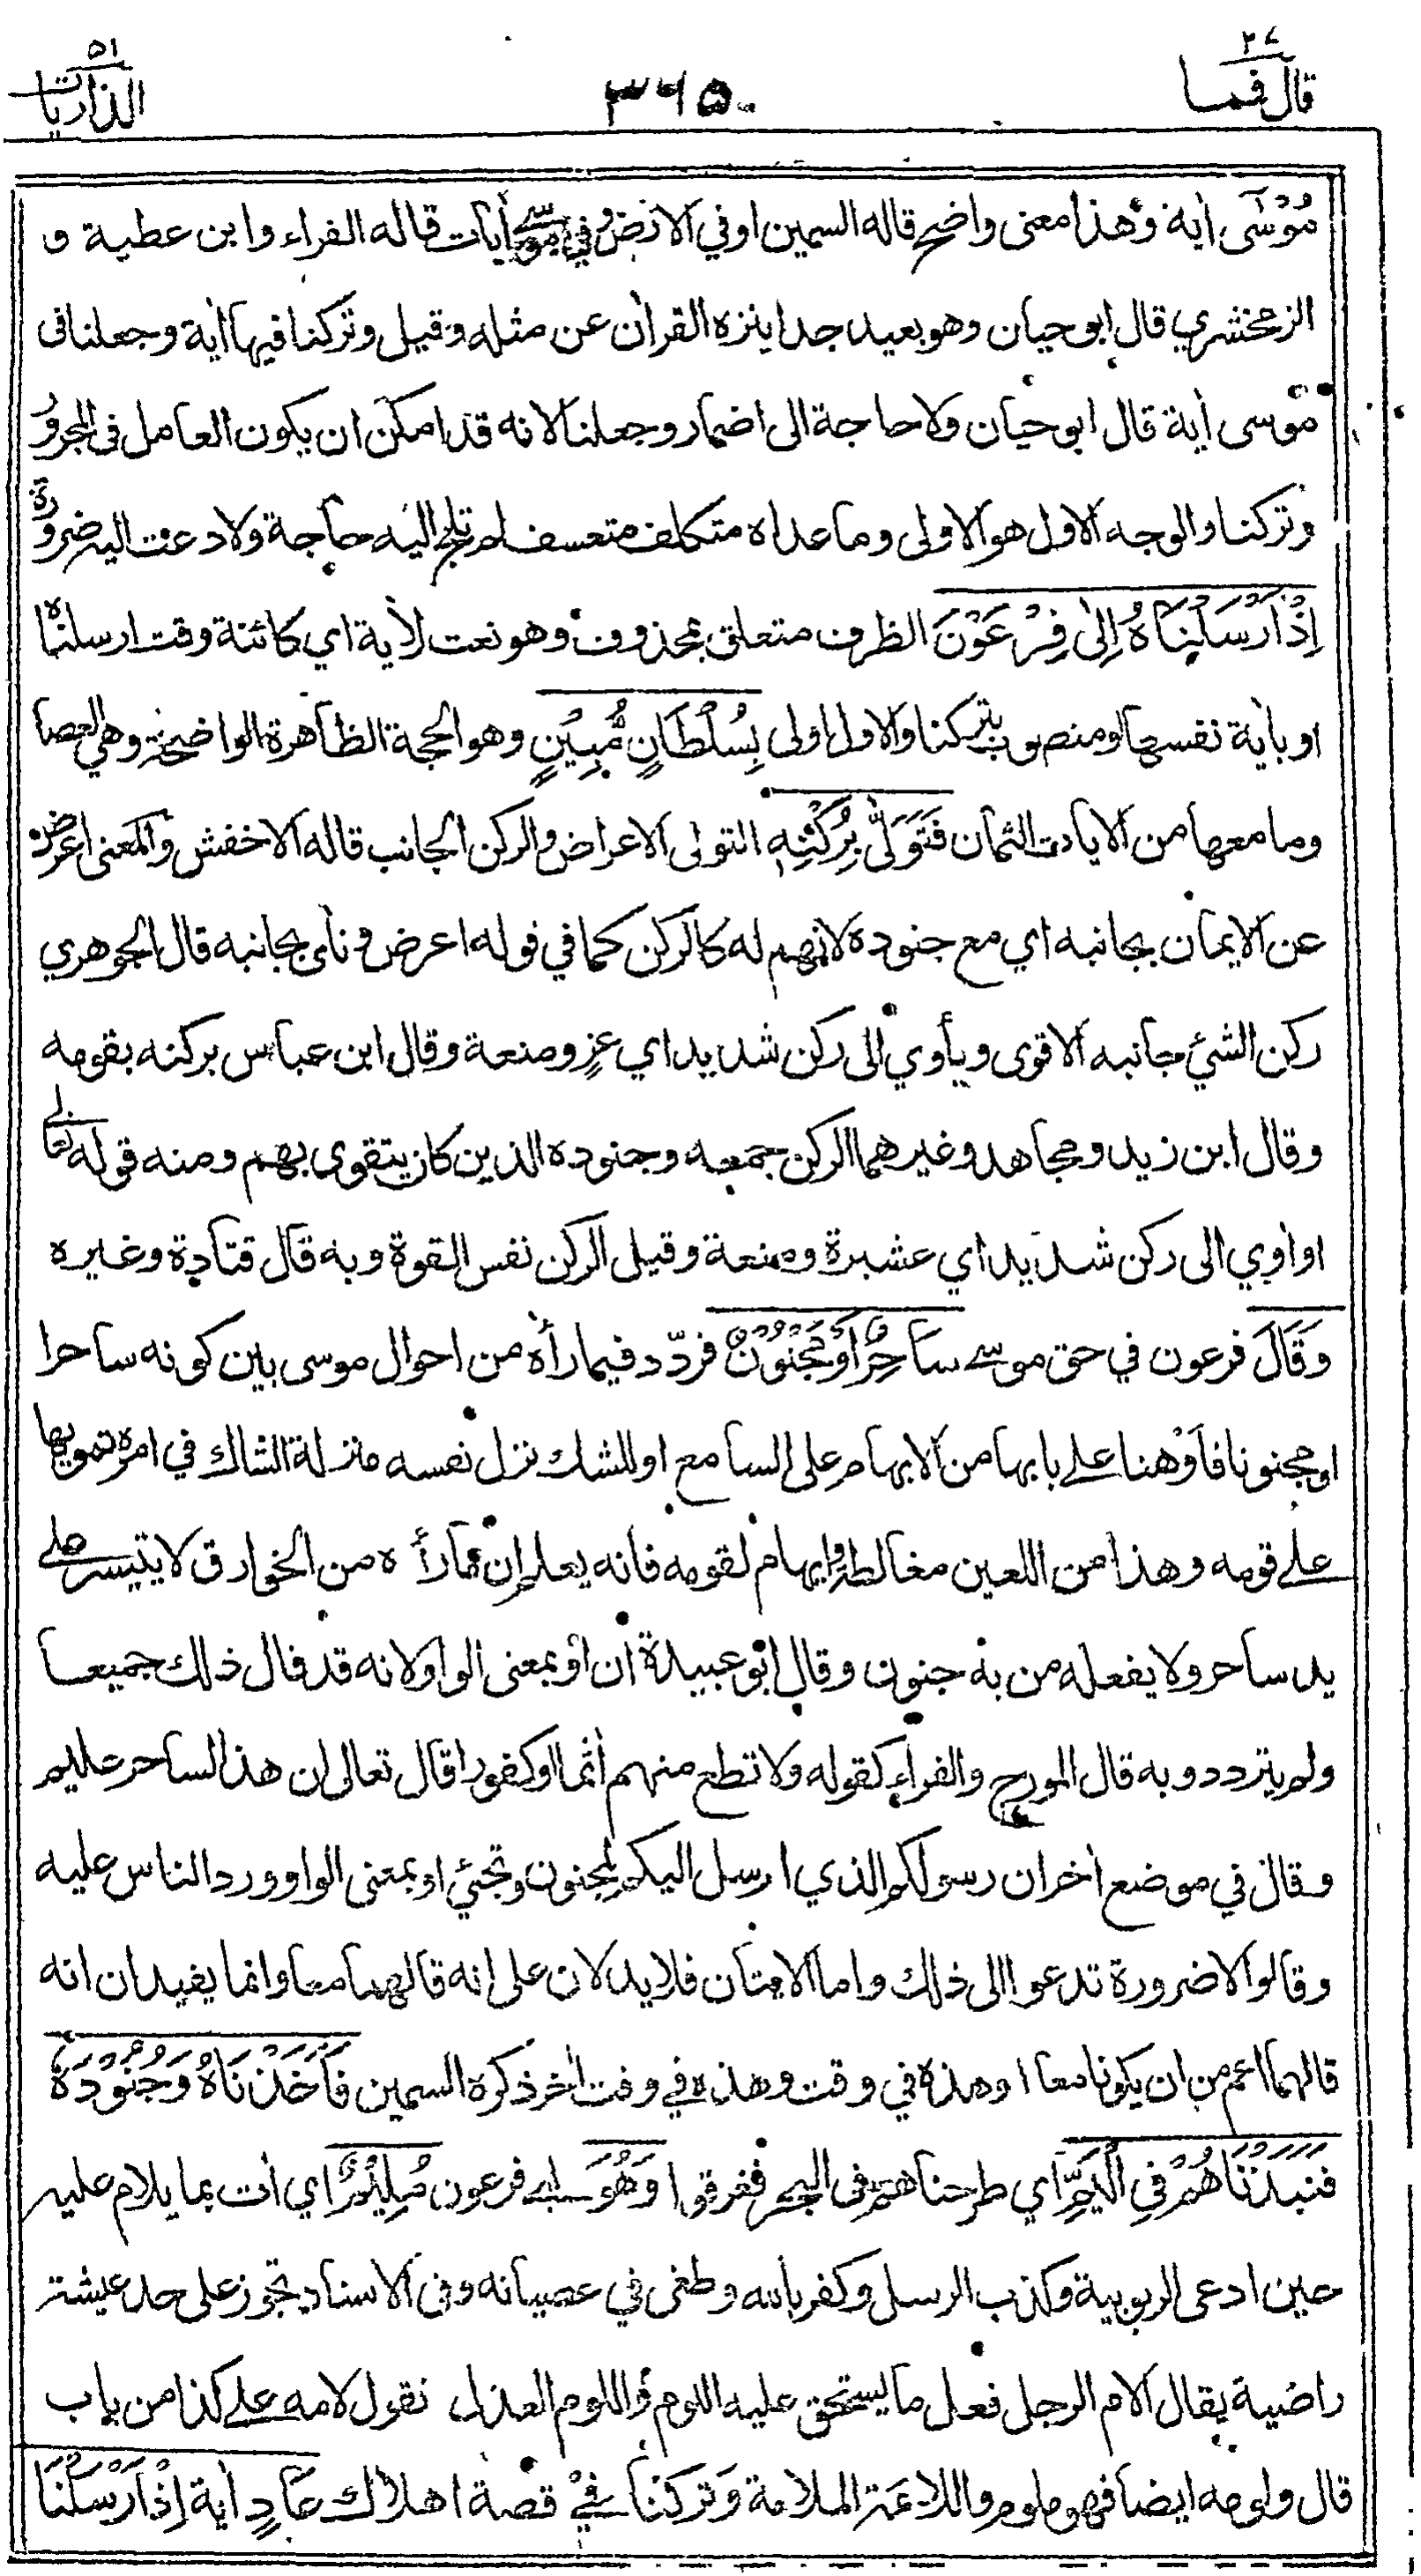 قال فما ٢٧
٣٦٥
الذاريات ٥١
مُوْسَى أية وهذا معنى واضح قاله السمين او في الارض وفي موسى أيات قاله الفراء وابن عطية و
الزمخشري قال ابو حيان وهو بعيد جدا ينزه القرأن عن مثله وقيل وتركنا فيها أية وجعلنا في
موسى أية قال ابو حيان ولا حاجة الى اضمار وجعلنا لانه قد امكن ان يكون العامل في المجرور
وتركنا والوجه الاول هو الاولى وما عداه متكلف متعسف لم تلج اليه حاجة ولا دعت اليه ضرورة
اِذْ اَرْسَلْنَاهُ اِلٰى فِرْعَوْنَ الظرف متعلق بمحذوف وهو نعت لأية اي كائنة وقت ارسلناه
او بأية نفسها او منصوب بتركنا والاول اولى بِسُلْطَانٍ مُّبِيْنٍ وهو الحجة الظاهرة الواضحة وهي العصا
وما معها من الايات الثمان فَتَوَلّٰى بِرُكْنِهٖ التولى الاعراض والركن الجانب قاله الاخفش والمعنى اعرض
عن الايمان بجانبه اي مع جنوده لانهم له كالركن كما في قوله اعرض ونأى بجانبه قال الجوهري
ركن الشئ جانبه الاقوى ويأوي الى ركن شديد اي عزٍ ومنعة وقال ابن عباس بركنه بقومه
وقال ابن زيد ومجاهد وغيرهما الركن جمعه وجنوده الذين كان يتقوى بهم ومنه قوله تعالى
او اوي الى ركن شديد اي عشيرة ومنعة وقيل الركن نفس القوة وبه قال قتادة وغيره
وَقَالَ فرعون في حق موسى سَاحِرٌ اَوْ مَجْنُوْنٌ فردّد فيما رأه من احوال موسى بين كونه ساحرا
او مجنونا فاَوْ هنا على بابها من الابهام على السامع او للشك نزل نفسه منزلة الشاك في امره تمويها
على قومه وهذا من اللعين مغالطة وايهام لقومه فانه يعلم ان ما رأه من الخوارق لا يتيسر على
يد ساحر ولا يفعله من به جنون وقال ابو عبيدة ان او بمعنى الواو لانه قد قال ذلك جميعا
ولم يتردد وبه قال المورج والفراء كقوله ولا تطع منهم أثما او كفورا قال تعالى ان هذا لساحر عليم
وقال في موضع أخر ان رسولكم الذي ارسل اليكم لمجنون وتجئ او بمعنى الواو ورد الناس عليه
وقالوا لا ضرورة تدعو الى ذلك واما الايتان فلا يدلان على انه قالهما معا وانما يفيدان انه
قالهما اعم من ان يكونا معا او هذه في وقت وهذه في وقت أخر ذكره السمين فَاَخَذْنَاهُ وَجُنُوْدَهٗ
فَنَبَذْنَاهُمْ فِي الْيَمِّ اي طرحناهم في البحر فغرقوا وَهُوَ اي فرعون مُلِيْمٌ اي أت بما يلام عليه
حين ادعى الربوبية وكذب الرسل وكفر بالله وطغى في عصيانه وفي الاسناد تجوز على حد عيشة
راضية يقال الام الرجل فعل ما يستحق عليه اللوم واللوم العذل نقول لامه على كذا من باب
قال ولومه ايضا فهو ملوم واللائمة الملامة وَتركنا فِيْ قصة اهلاك عَادٍ أية اِذْ اَرْسَلْنَا